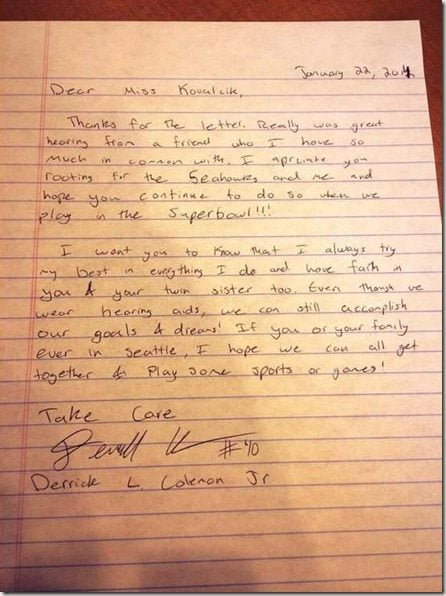 January 22, 2014
Dear Miss Kovalcik,
Thanks for the letter. Really was great
hearing from a friend who I have so
much in common with. I aprciate you
rooting for the Seahawks and me and
hope you continue to do so when we
play in the Superbowl!!!
I want you to know that I always try
my best in everything I do and have faith in
you & your twin sister too. Even though we
wear hearing aids, we can still accomplish
our goals & dreams! If you or your family
ever in Seattle, I hope we can all get
together & play some sports or games!
Take Care
#40
Derrick L. Coleman Jr